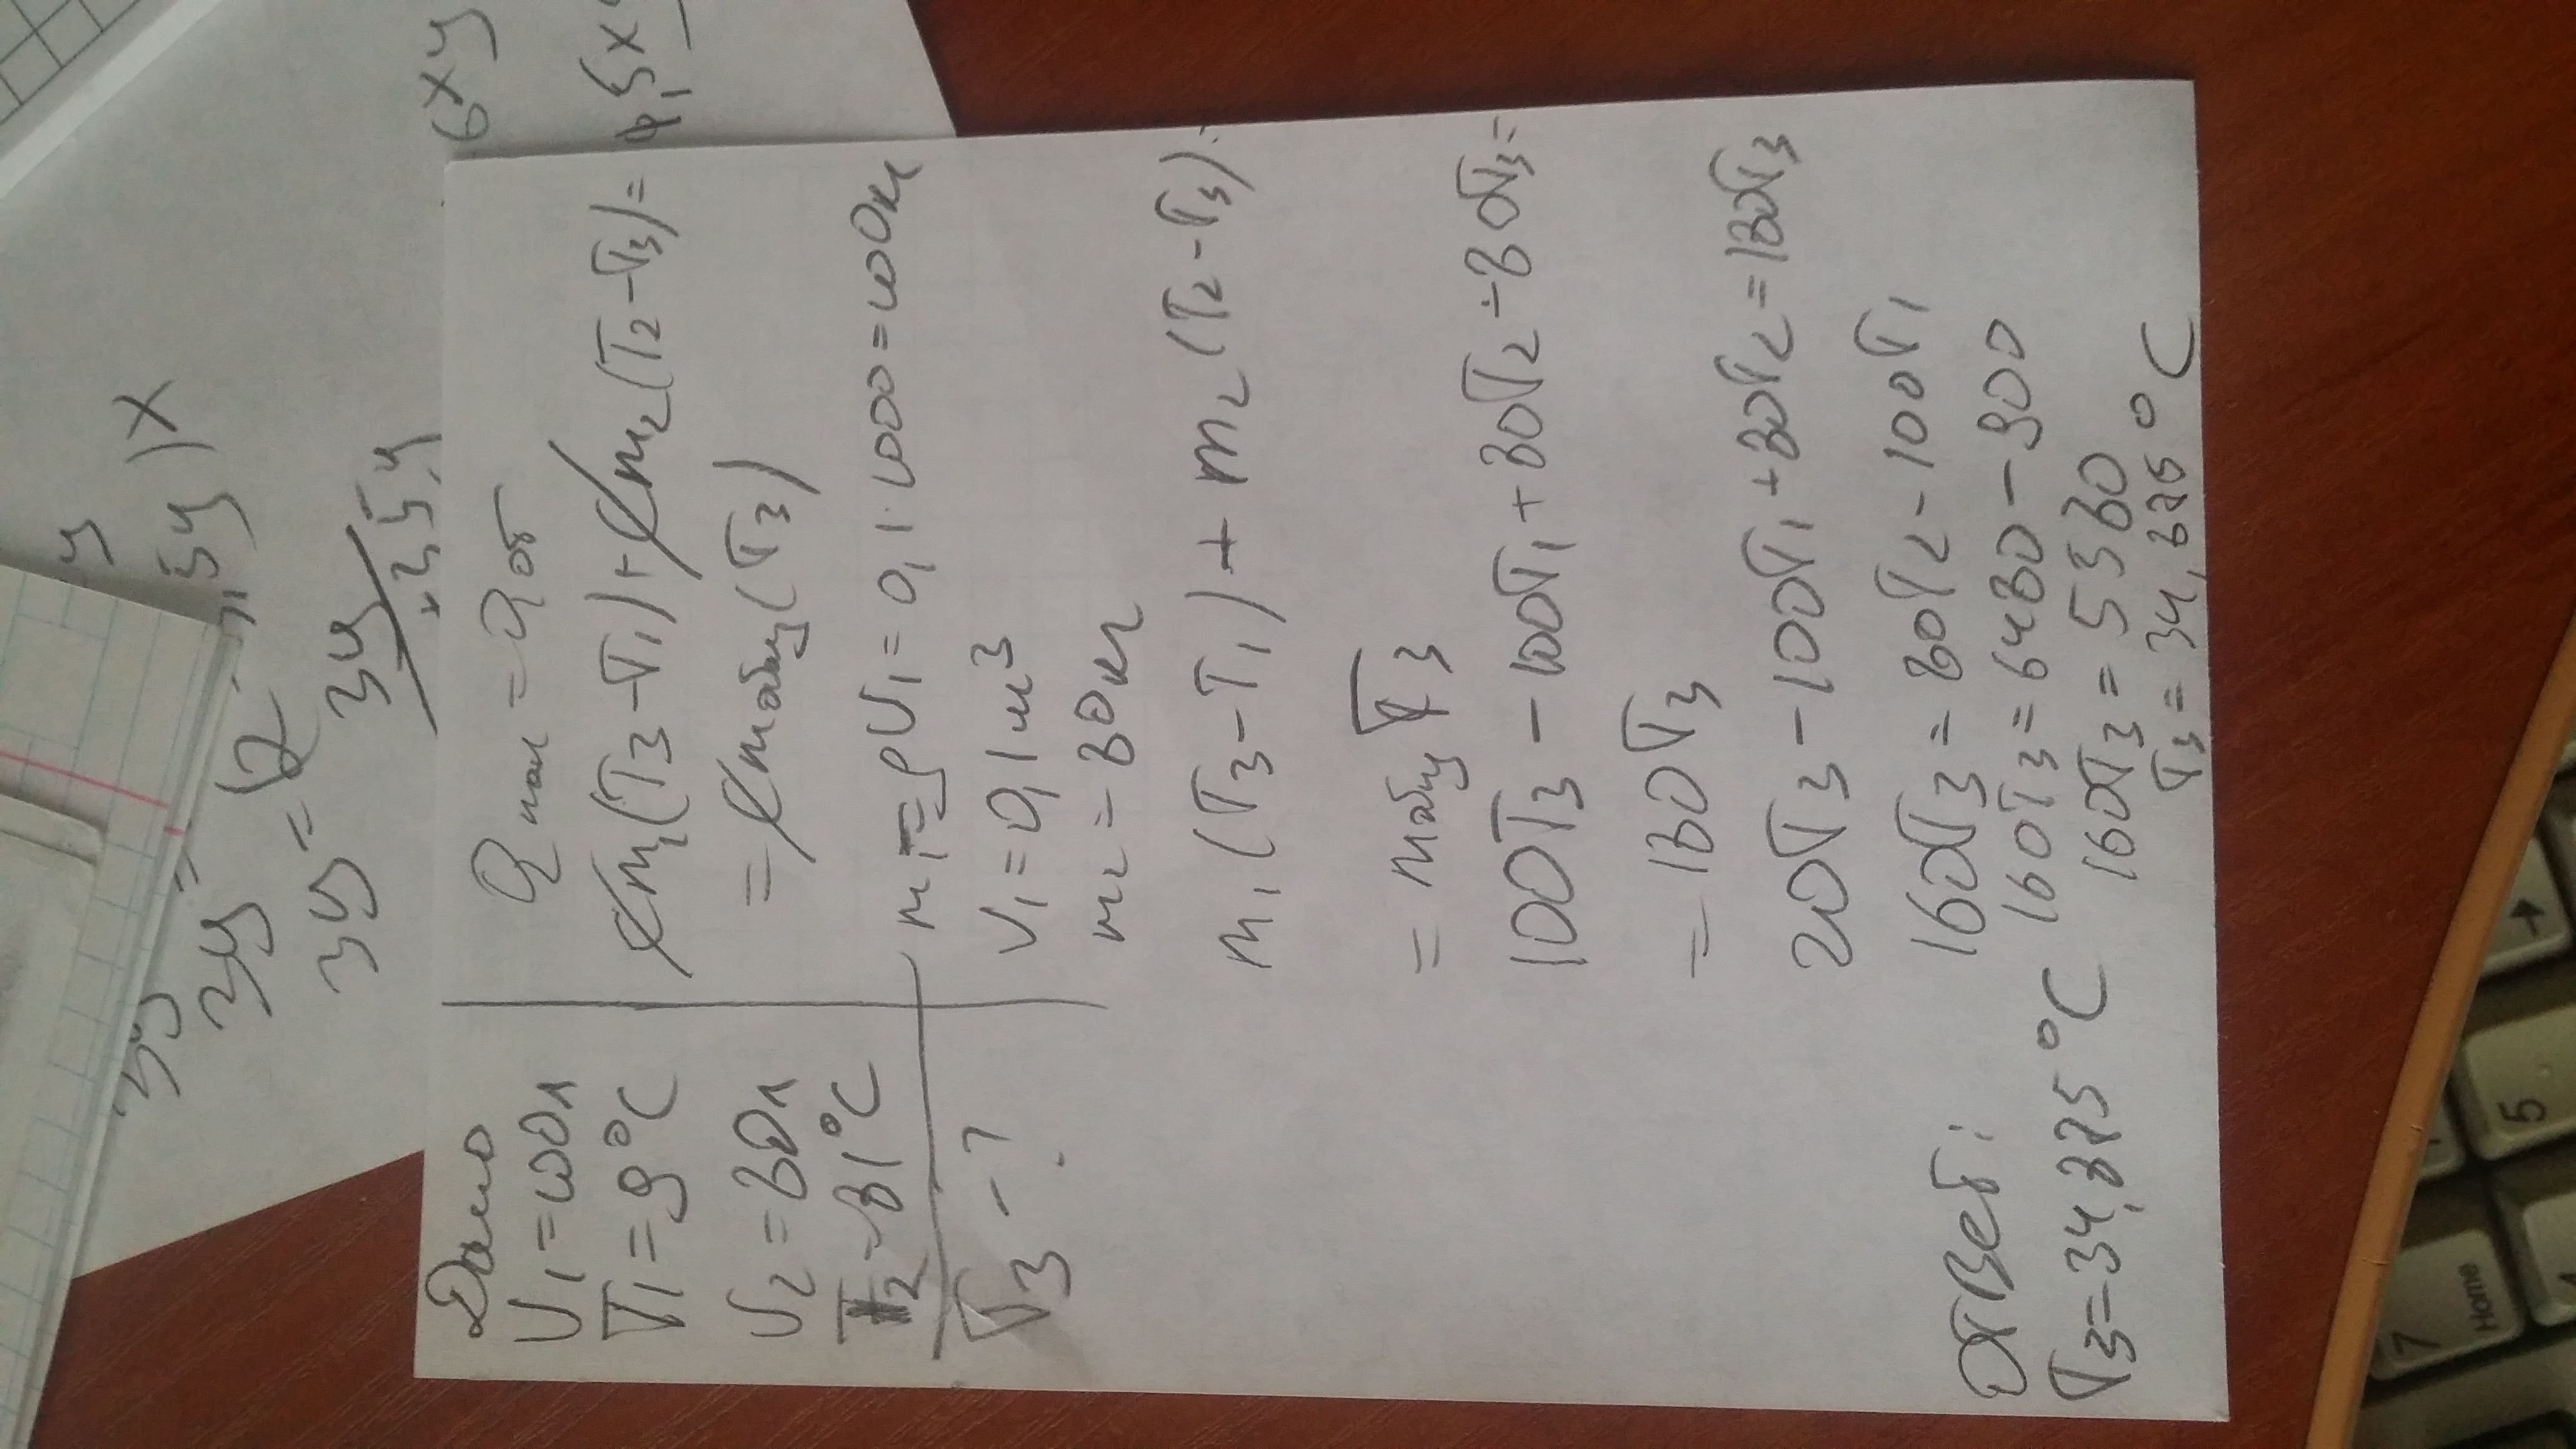 Дано
V₁=100л
T₁=9°C
V₂=80л
T₂=81°C
T₃-?
Qпол=Qот
cm₁(T₃-T₁)+cm₂(T₂-T₃)=
=cmобщ(T₃)
m₁=ρV₁=0,1·1000=100кг
V₁=0,1м³
m₂=80кг
m₁(T₃-T₁)+m₂(T₂-T₃)=
=mобщT₃
100T₃-100T₁+80T₂-80T₃=
=180T₃
20T₃-100T₁+80T₂=180T₃
160T₃=80T₂-100T₁
160T₃=6480-900
160T₃=5580
T₃=34,875°C
Ответ:
T₃=34,875°C
3y=
3y
6xy
1,5y)x
7
Home
5